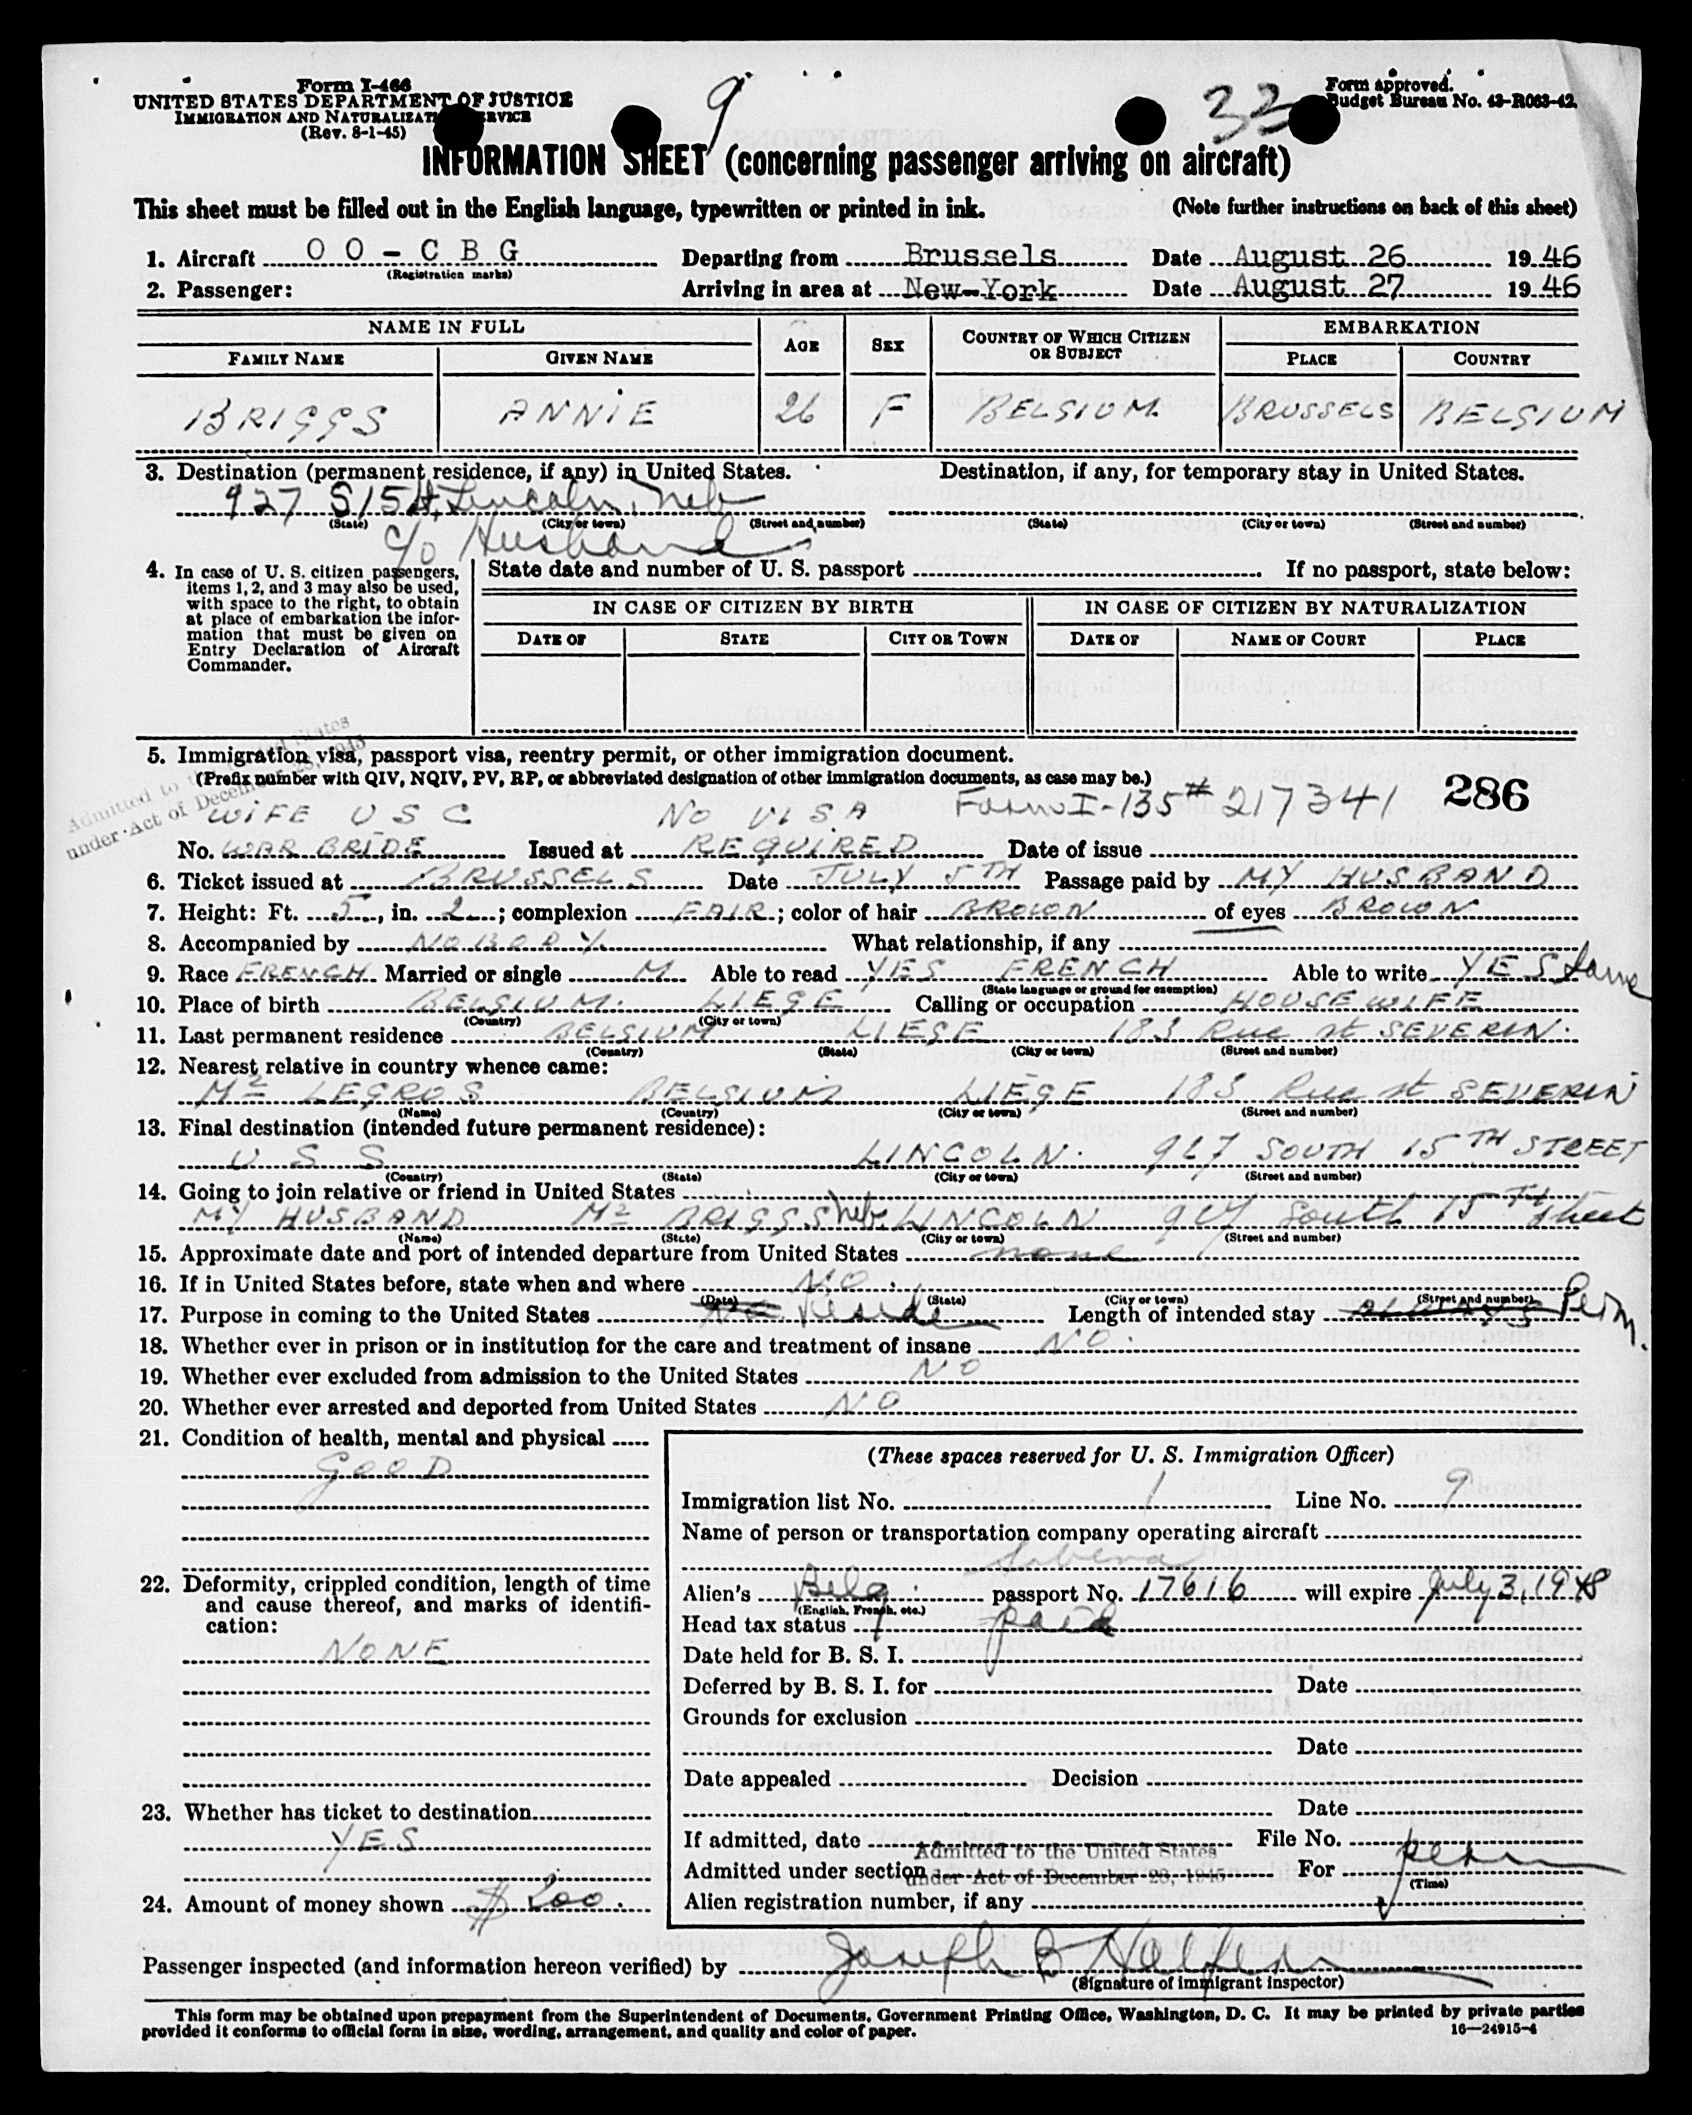 Form I-466
UNITED STATES DEPARTMENT OF JUSTICE
IMMIGRATION AND NATURALIZATION SERVICE
(Rev. 8-1-45)
9
33
Form approved.
Budget Bureau No. 43-R063-42.
INFORMATION SHEET (concerning passenger arriving on aircraft)
This sheet must be filled out in the English language, typewritten or printed in ink. (Note further instructions on back of this sheet)
1. Aircraft OO-CBG Departing from Brussels Date August 26 1946
(Registration marks)
2. Passenger: Arriving in area at New-York Date August 27 1946
NAME IN FULL AGE SEX COUNTRY OF WHICH CITIZEN OR SUBJECT EMBARKATION
FAMILY NAME GIVEN NAME PLACE COUNTRY
BRIGGS ANNIE 26 F BELGIUM BRUSSELS BELGIUM
3. Destination (permanent residence, if any) in United States. Destination, if any, for temporary stay in United States.
927 S 15 St, Lincoln, Neb
(State) (City or town) (Street and number) (State) (City or town) (Street and number)
c/o Husband
4. In case of U. S. citizen passengers, items 1, 2, and 3 may also be used, with space to the right, to obtain at place of embarkation the information that must be given on Entry Declaration of Aircraft Commander.
State date and number of U. S. passport If no passport, state below:
IN CASE OF CITIZEN BY BIRTH IN CASE OF CITIZEN BY NATURALIZATION
DATE OF STATE CITY OR TOWN DATE OF NAME OF COURT PLACE
Admitted to the United States
under Act of December 28, 1945
5. Immigration visa, passport visa, reentry permit, or other immigration document.
(Prefix number with QIV, NQIV, PV, RP, or abbreviated designation of other immigration documents, as case may be.)
286
WIFE USC NO VISA Form I-135 # 217341
No. WAR BRIDE Issued at REQUIRED Date of issue
6. Ticket issued at BRUSSELS Date JULY 5TH Passage paid by MY HUSBAND
7. Height: Ft. 5, in. 2; complexion FAIR; color of hair BROWN of eyes BROWN
8. Accompanied by NOBODY. What relationship, if any
9. Race FRENCH Married or single M Able to read YES FRENCH Able to write YES Same
(State language or ground for exemption)
10. Place of birth BELGIUM. LIEGE Calling or occupation HOUSEWIFE
(Country) (City or town)
11. Last permanent residence BELGIUM LIEGE 183 Rue st SEVERIN.
(Country) (State) (City or town) (Street and number)
12. Nearest relative in country whence came:
Mr LEGROS BELGIUM LIÈGE 183 Rue st SEVERIN
(Name) (Country) (City or town) (Street and number)
13. Final destination (intended future permanent residence):
U S S LINCOLN. 927 SOUTH 15TH STREET
(Country) (State) (City or town) (Street and number)
14. Going to join relative or friend in United States
MY HUSBAND Mr BRIGGS Neb. LINCOLN 927 South 15TH street
(Name) (State) (City or town) (Street and number)
15. Approximate date and port of intended departure from United States none
16. If in United States before, state when and where NO
(Date) (State) (City or town) (Street and number)
17. Purpose in coming to the United States reside Length of intended stay ALWAYS Perm.
18. Whether ever in prison or in institution for the care and treatment of insane NO
19. Whether ever excluded from admission to the United States NO
20. Whether ever arrested and deported from United States NO
21. Condition of health, mental and physical
GOOD
22. Deformity, crippled condition, length of time and cause thereof, and marks of identification:
NONE
23. Whether has ticket to destination
YES
24. Amount of money shown $ 200.
(These spaces reserved for U. S. Immigration Officer)
Immigration list No. 1 Line No. 9
Name of person or transportation company operating aircraft
Sabena
Alien's Belg. passport No. 17616 will expire July 3, 1948
(English, French, etc.)
Head tax status paid
Date held for B. S. I.
Deferred by B. S. I. for Date
Grounds for exclusion
Date
Date appealed Decision
Date
If admitted, date File No.
Admitted to the United States
Admitted under section under Act of December 28, 1945 For perm
(Time)
Alien registration number, if any
Passenger inspected (and information hereon verified) by Joseph B Halpern
(Signature of immigrant inspector)
This form may be obtained upon prepayment from the Superintendent of Documents, Government Printing Office, Washington, D. C. It may be printed by private parties
provided it conforms to official form in size, wording, arrangement, and quality and color of paper. 16—24915-4